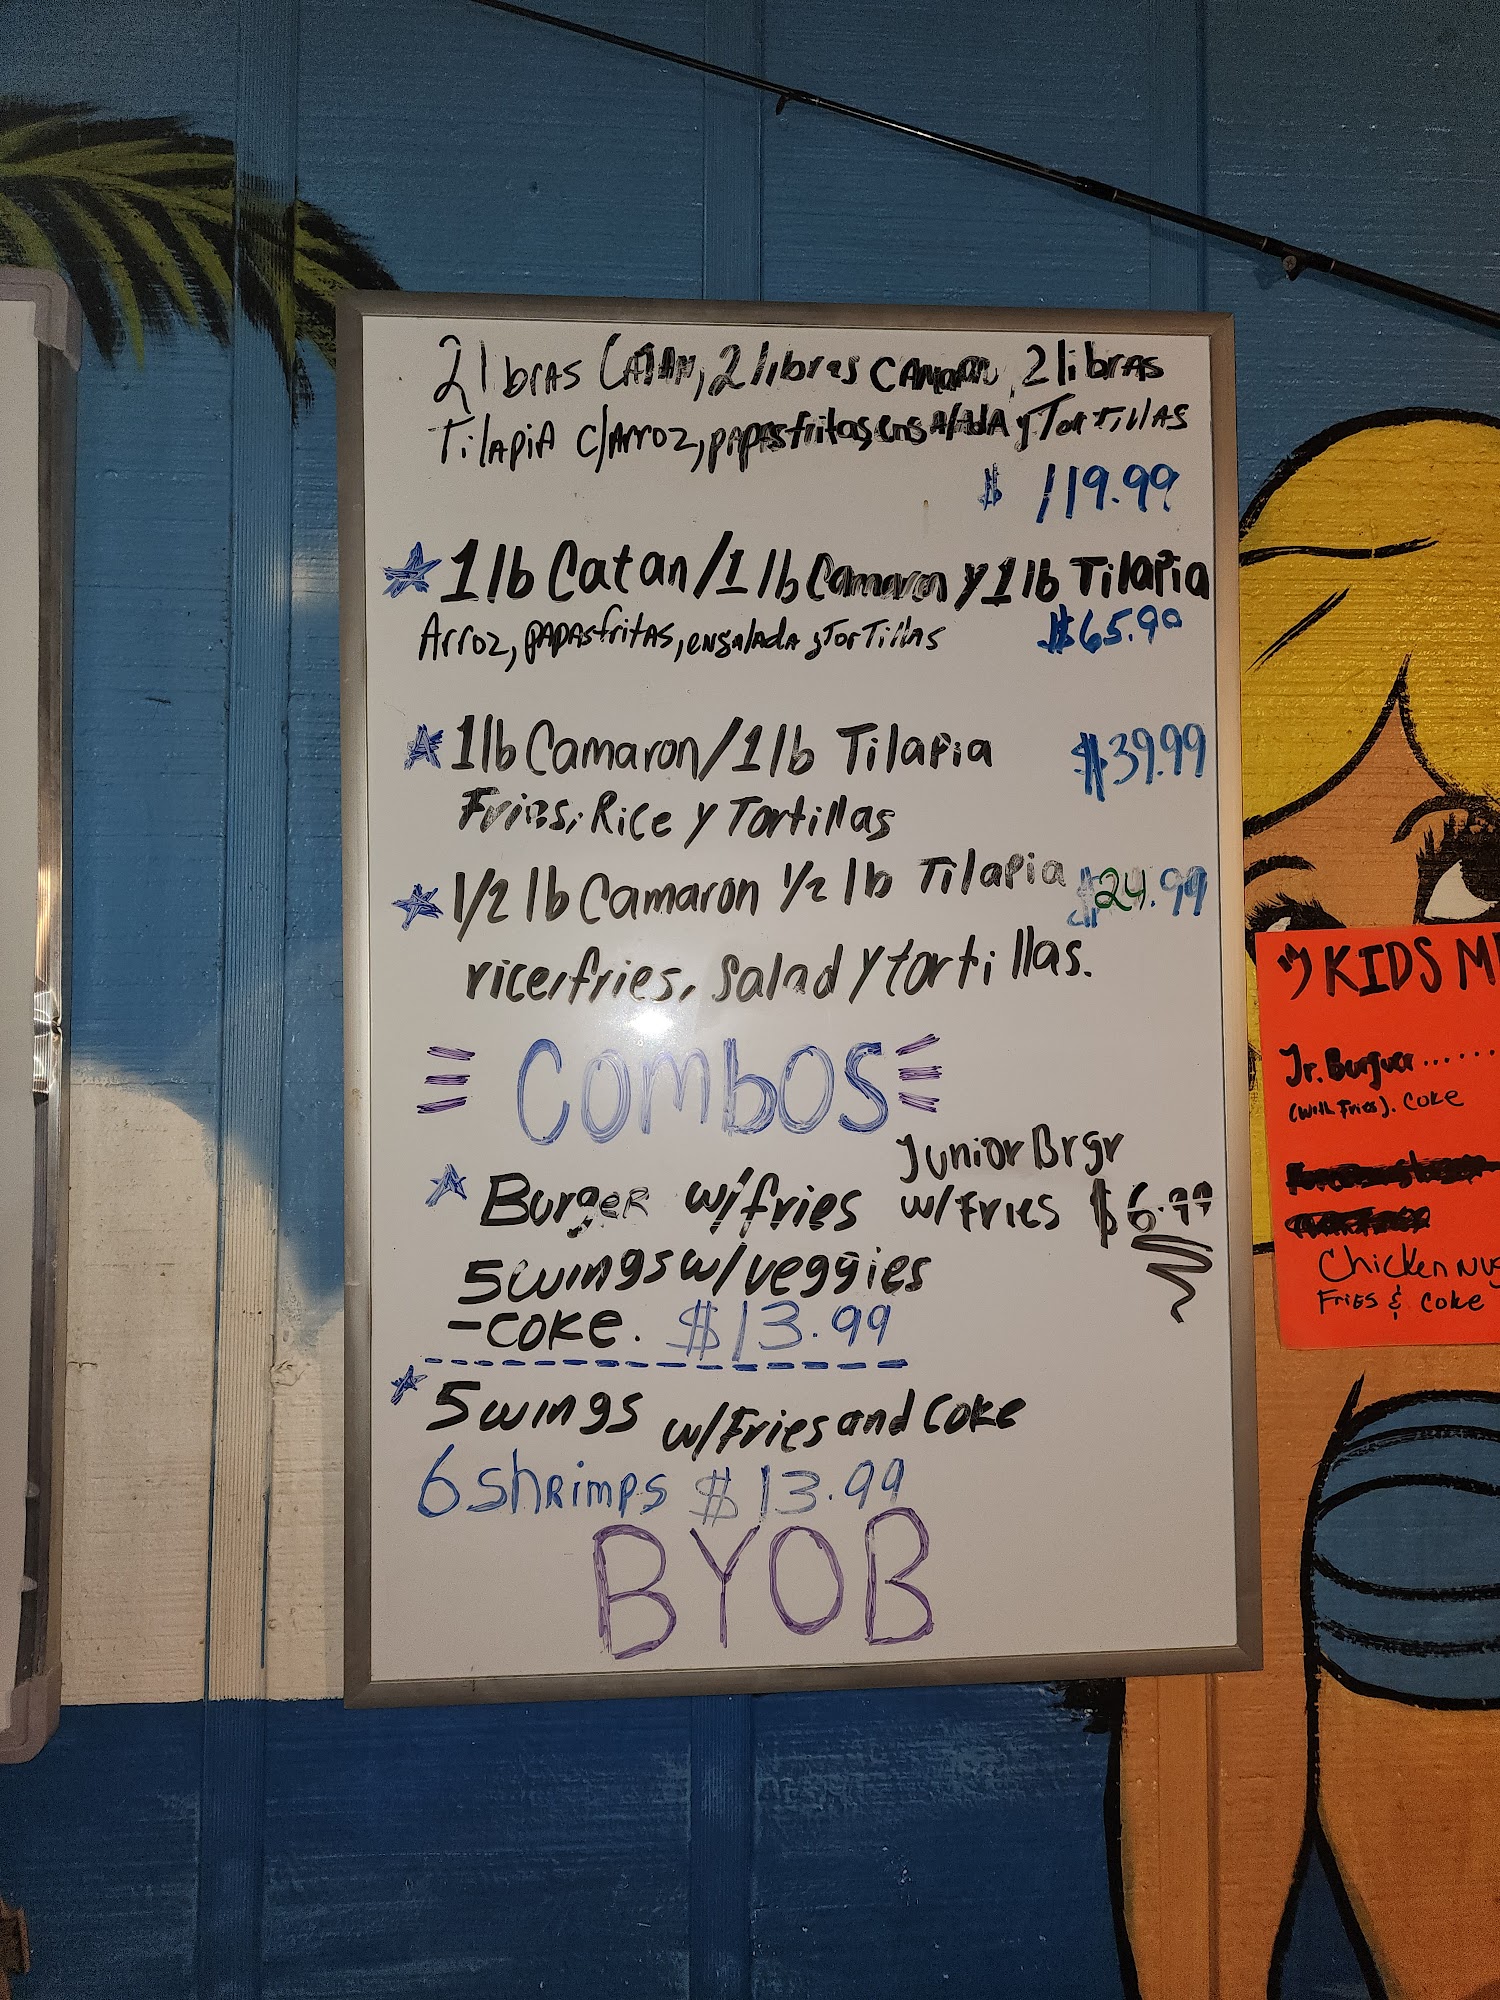 2 libras Catan, 2 libras Camaron, 2 libras
Tilapia c/Arroz, papasfritas, ensalada y Tortillas
$ 119.99
1 lb Catan/1 lb Camaron y 1 lb Tilapia
Arroz, papasfritas, ensalada y Tortillas $65.90
1lb Camaron/1 lb Tilapia $39.99
Fries, Rice y Tortillas
1/2 lb Camaron 1/2 lb Tilapia $24.99
rice, fries, Salad y tortillas.
Combos
Junior Brgr
Burger w/fries w/Fries $6.99
5 wings w/veggies
-COKE. $13.99
5 wings w/Fries and Coke
6 Shrimps $13.99
BYOB
KIDS M
Jr. Burguer......
(with Fries). Coke
Chicken Nug
Fries & Coke